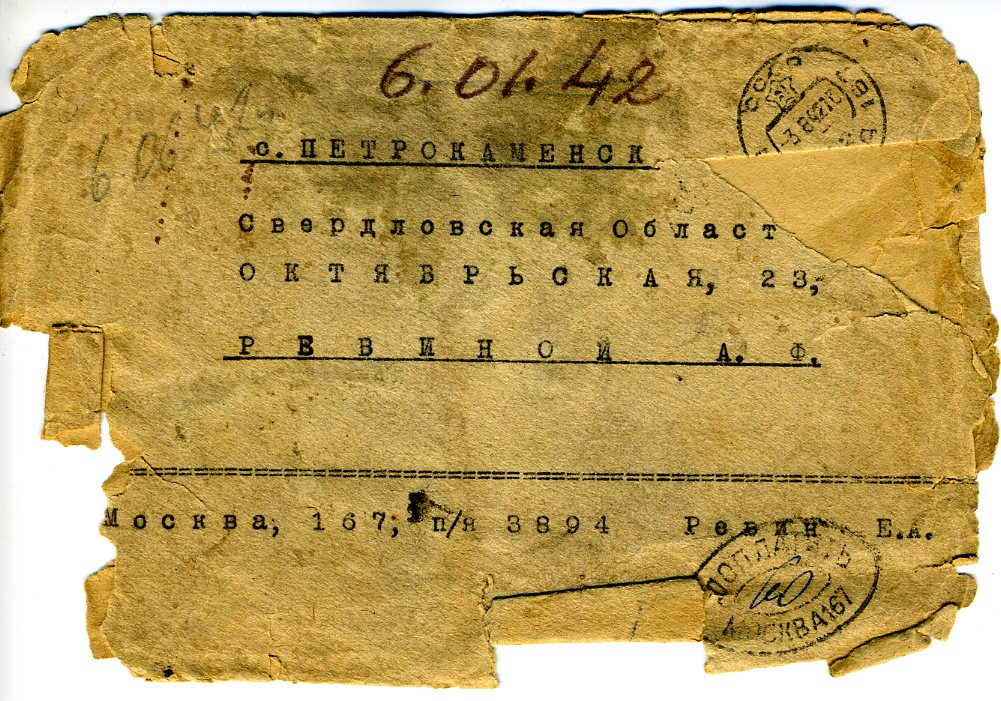 6.01.42
6.06 42
с. ПЕТРОКАМЕНСК
Свердловская Област
ОКТЯБРЬСКАЯ, 23,
РЕВИНОЙ А. Ф.
Москва, 167; п/я 3894 Ревин Е.А.
ДОПЛАТИТЬ
60
МОСКВА 167